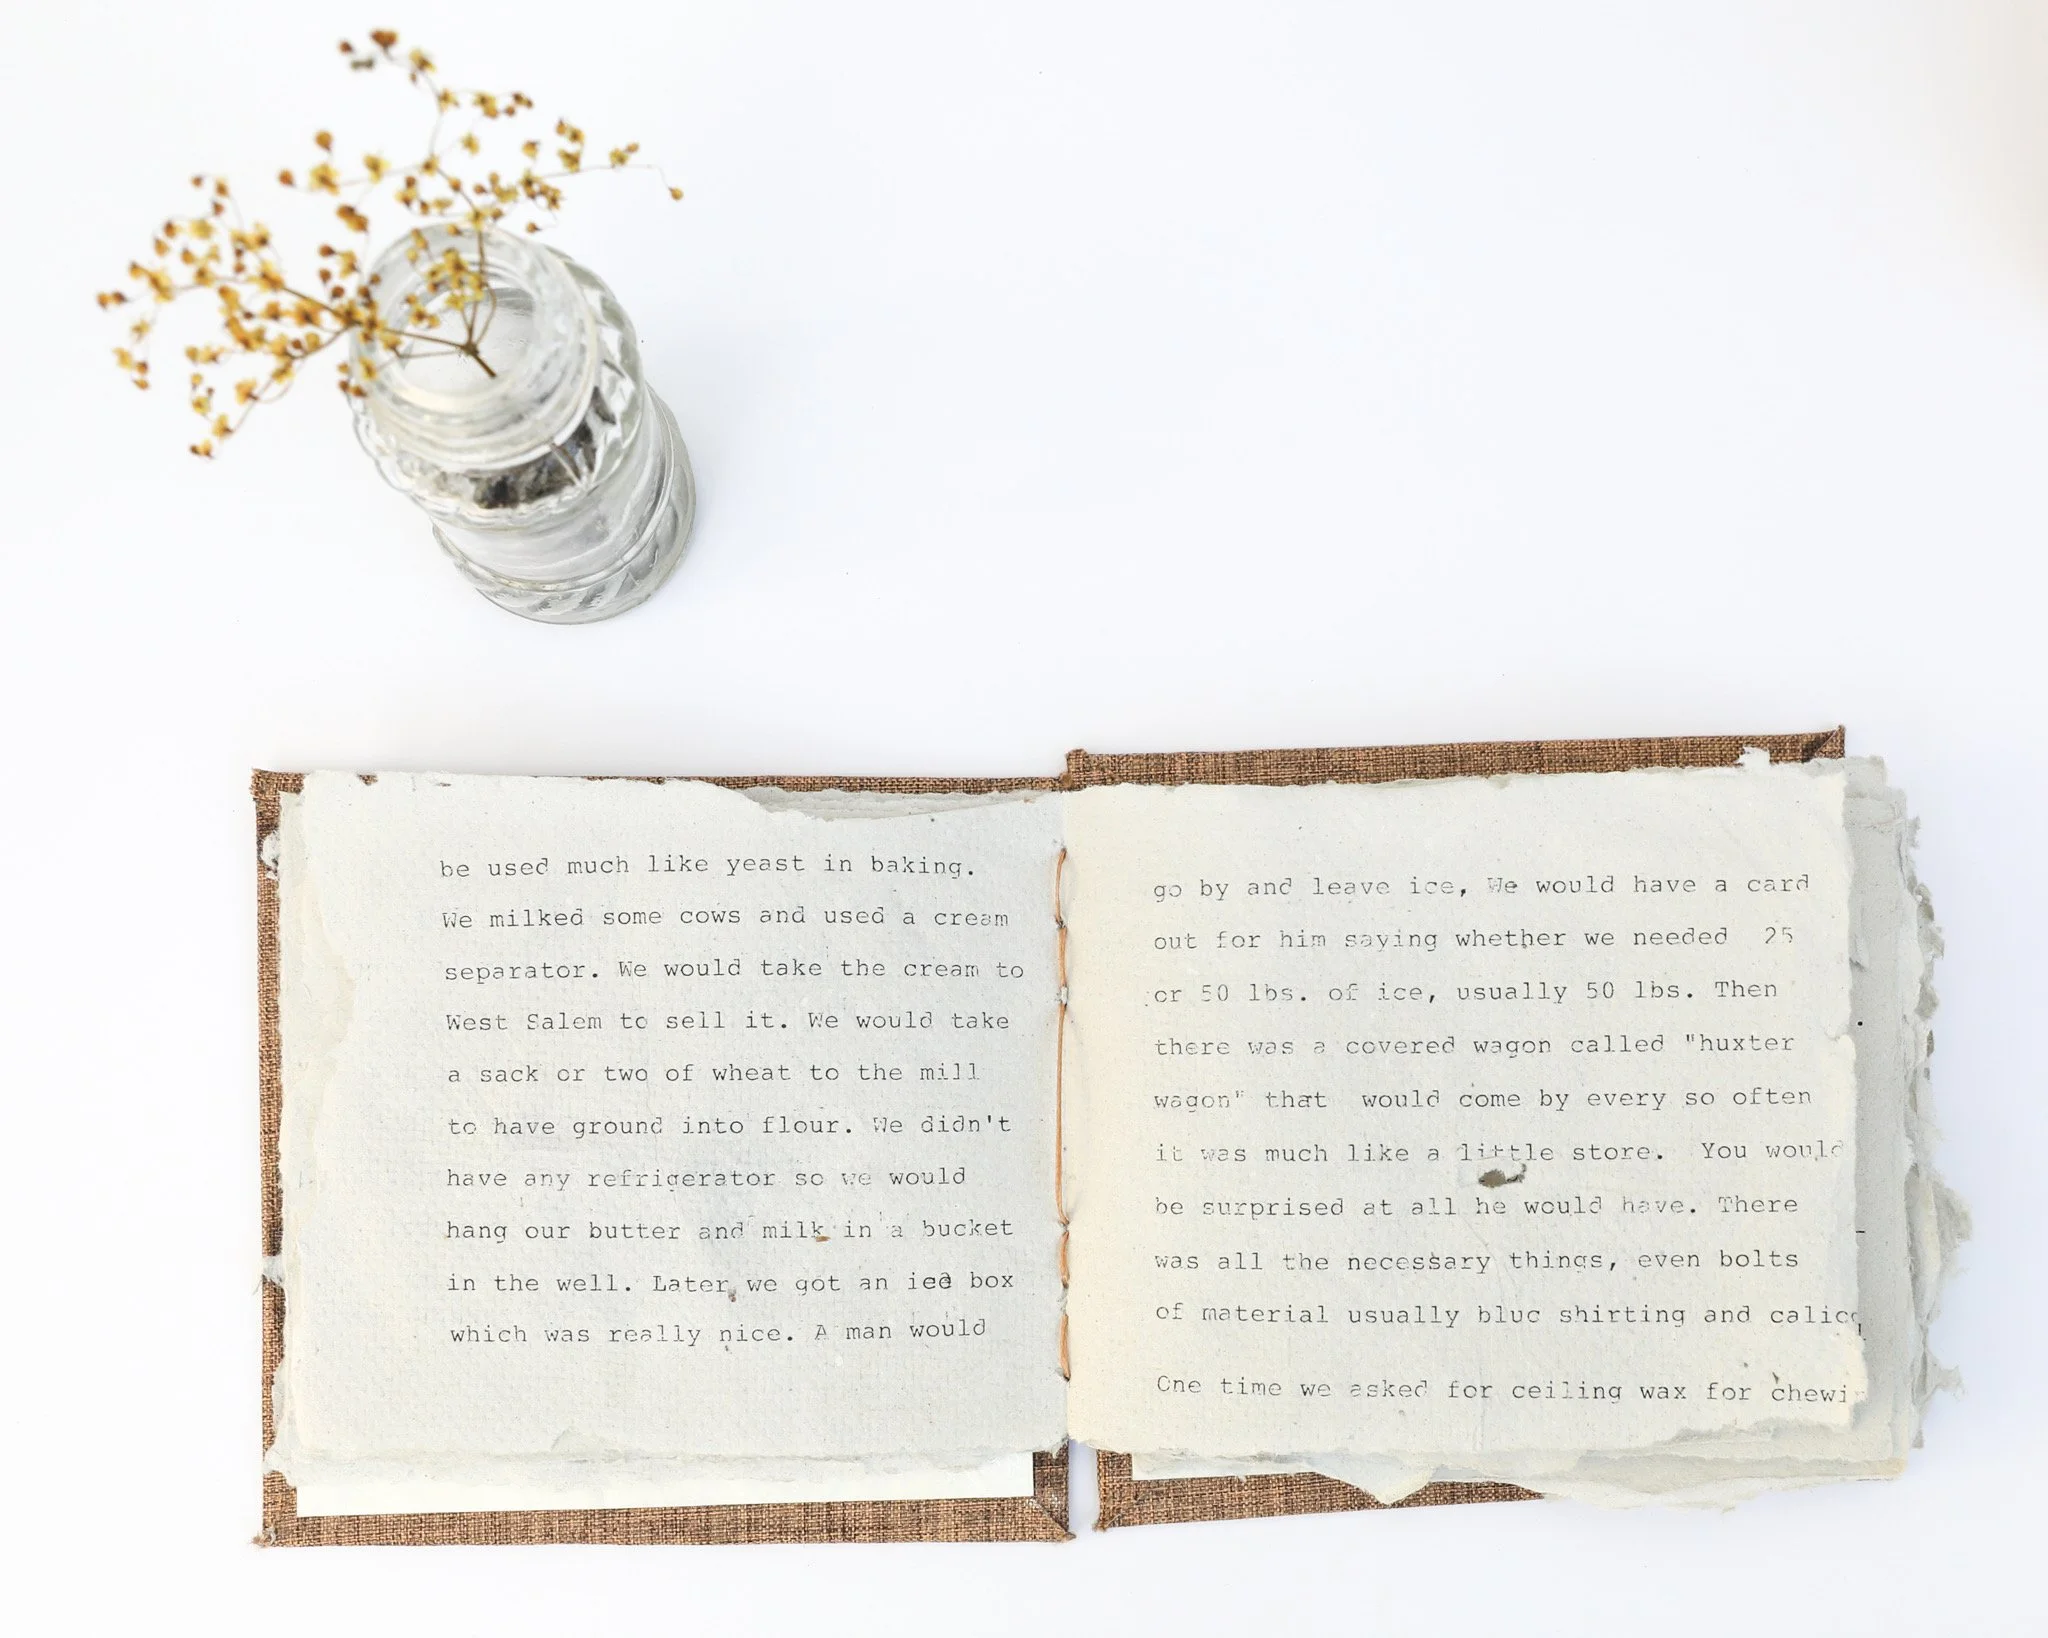 be used much like yeast in baking.
We milked some cows and used a cream
separator. We would take the cream to
West Salem to sell it. We would take
a sack or two of wheat to the mill
to have ground into flour. We didn't
have any refrigerator so we would
hang our butter and milk in a bucket
in the well. Later we got an ice box
which was really nice. A man would
go by and leave ice, We would have a card
out for him saying whether we needed 25
or 50 lbs. of ice, usually 50 lbs. Then
there was a covered wagon called "huxter
wagon" that would come by every so often
it was much like a little store. You would
be surprised at all he would have. There
was all the necessary things, even bolts
of material usually blue shirting and calico
One time we asked for ceiling wax for chewin